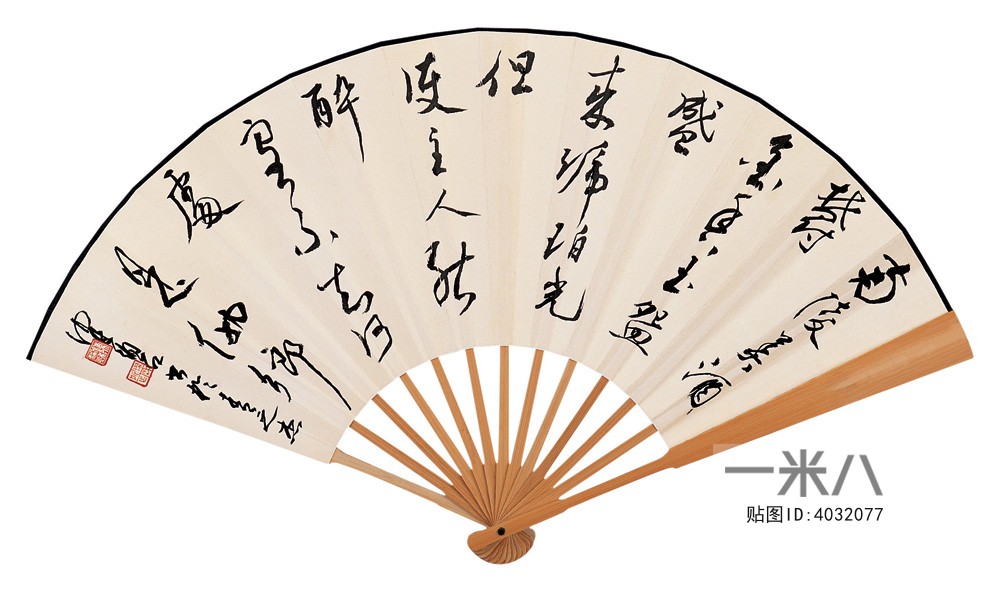 蘭陵美酒
鬱
金香玉盌
盛
來琥珀光
但
使主人能
醉
客不知何
處
是他鄉
一米八
贴图ID:4032077